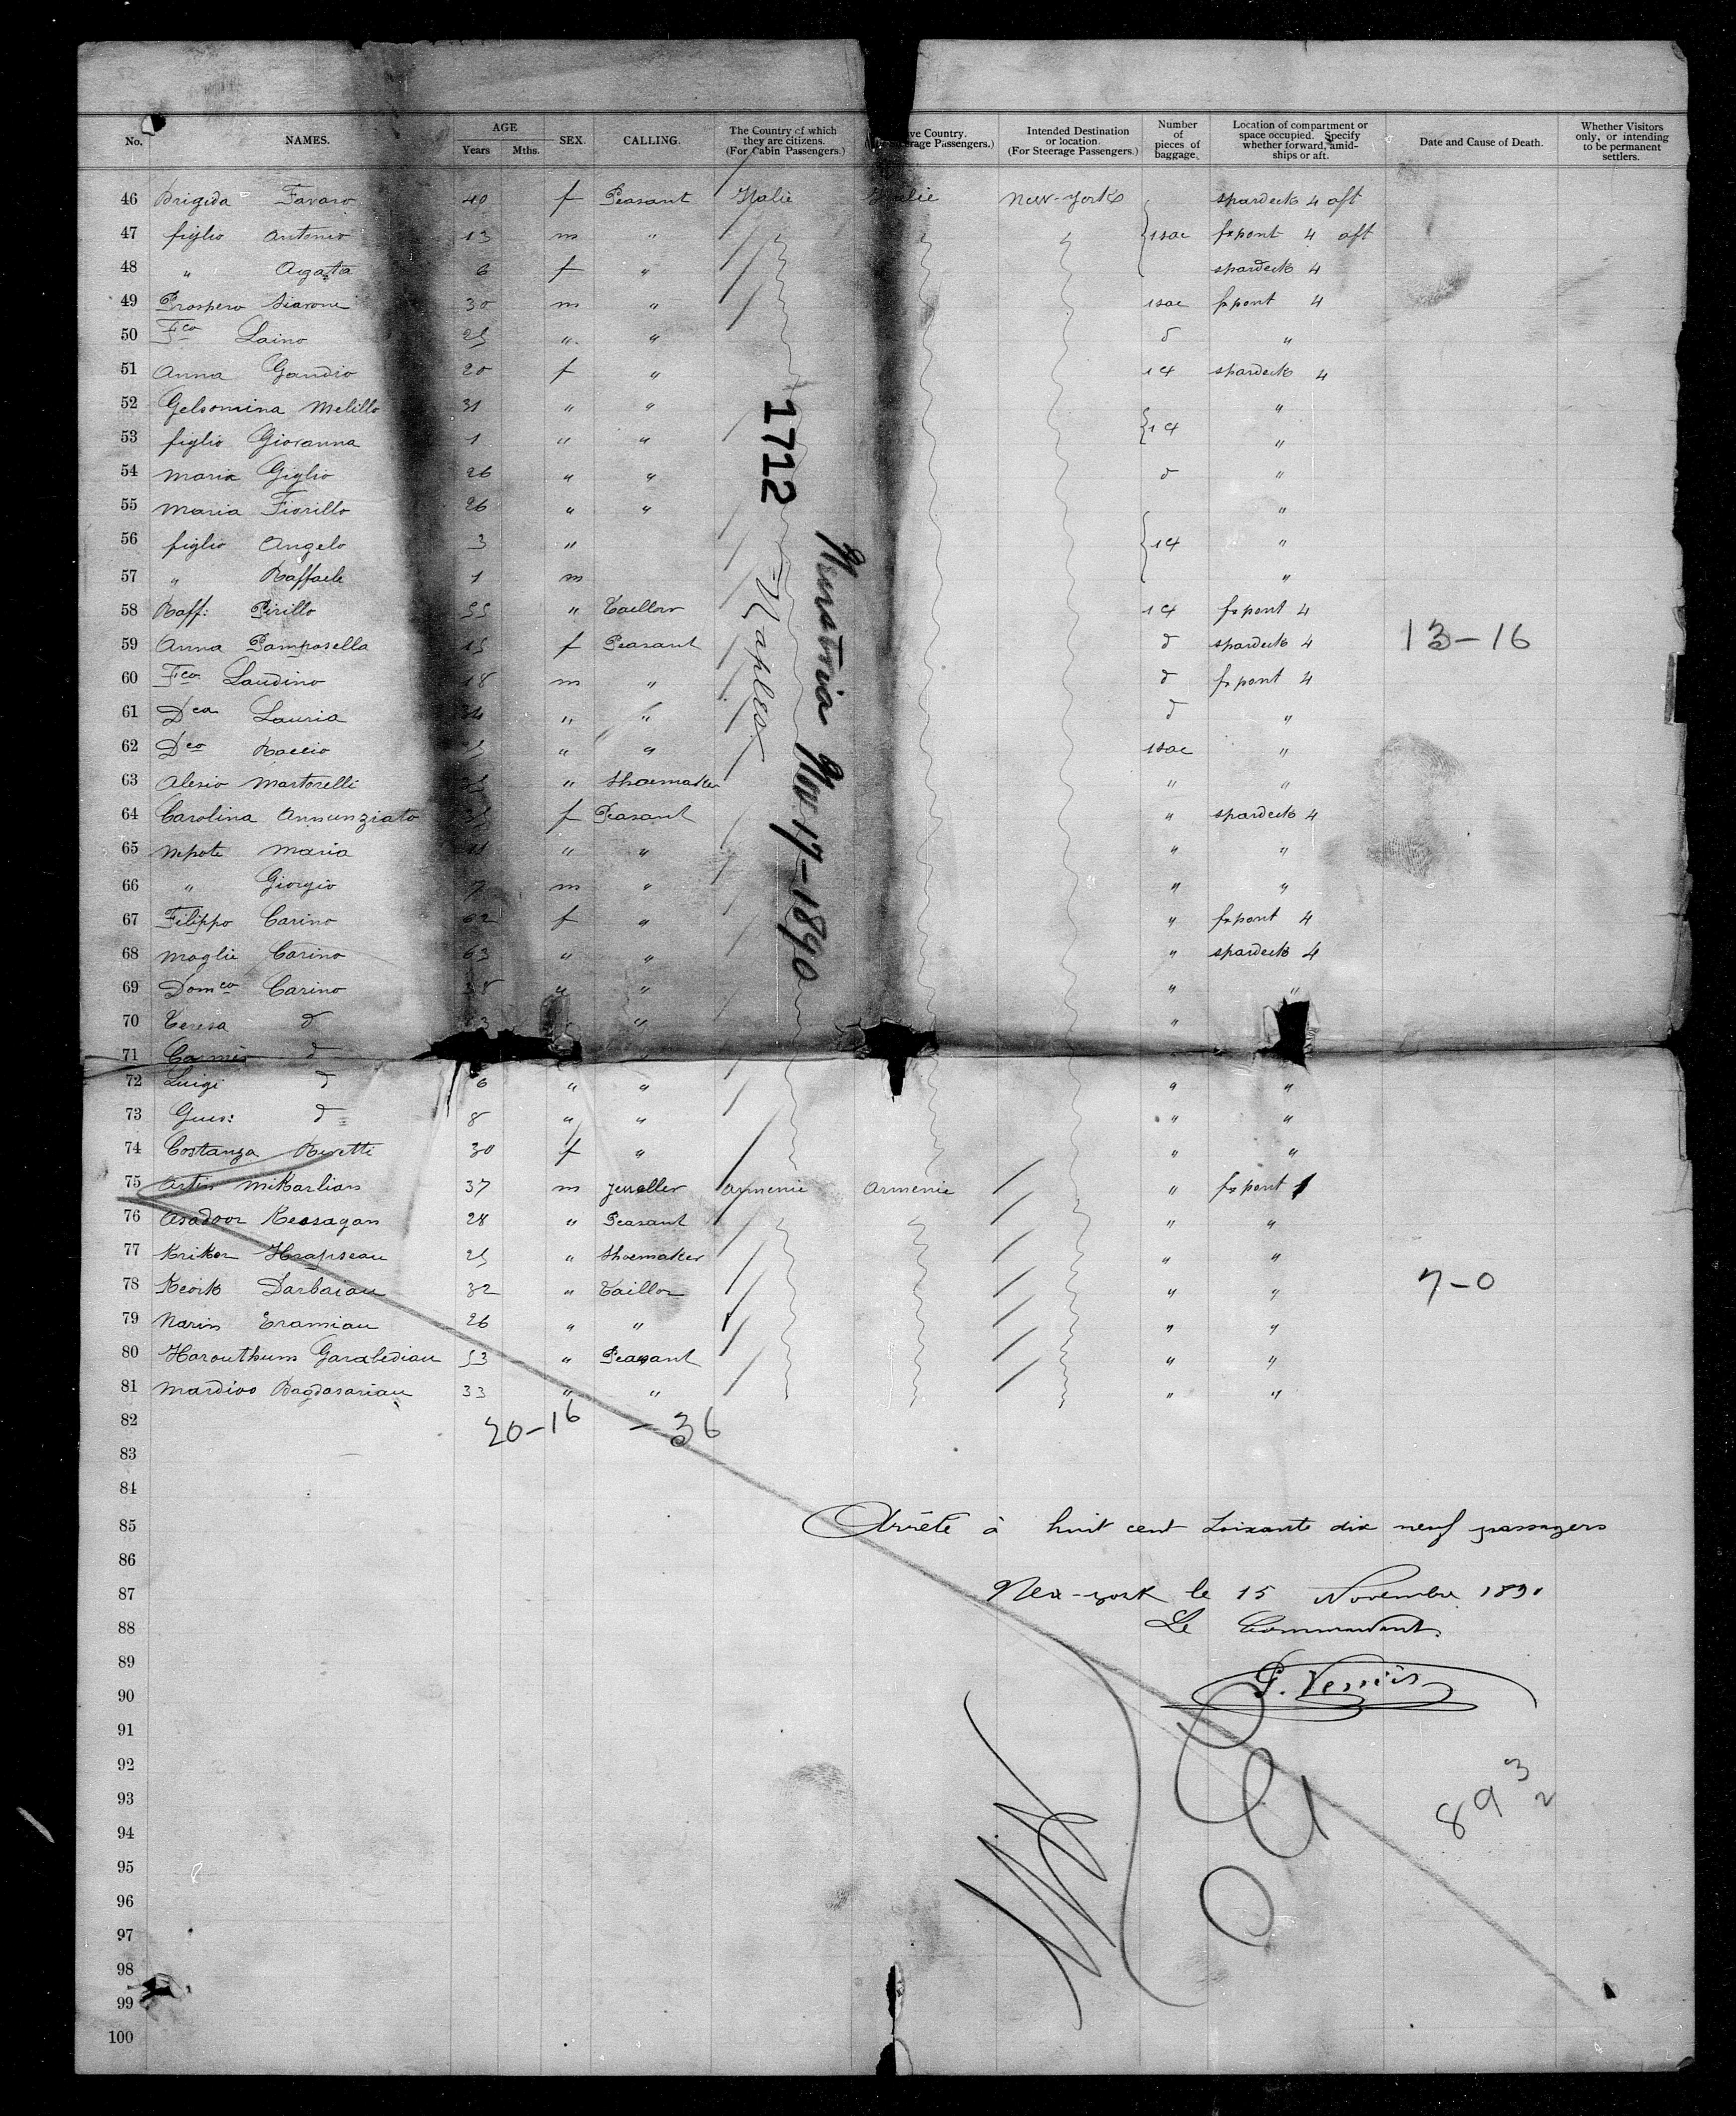 No. NAMES. AGE Years Mths. SEX. CALLING. The Country of which they are citizens. (For Cabin Passengers.) ve Country. erage Passengers.) Intended Destination or location. (For Steerage Passengers.) Number of pieces of baggage. Location of compartment or space occupied. Specify whether forward, amid-ships or aft. Date and Cause of Death. Whether Visitors only, or intending to be permanent settlers.
46 Brigida Favaro 40 f Peasant Italie Italie New-York spardeck 4 aft
47 figlio Antonio 13 m " 1 sac fxpont 4 aft
48 " Agata 6 f " spardeck 4
49 Prospero 30 m " 1 sac fxpont 4
50 Fco Laino 25 " " d "
51 Anna Gaudio 20 f " 1 4 spardeck 4
52 Gelsomina Melillo 31 " " 1 4 "
53 figlio Giovanna 1 " " "
54 Maria Giglio 26 " " d "
55 Maria Fiorillo 26 " " "
56 figlio Angelo 3 " 1 4 "
57 " Raffaele 1 m "
58 Raff: Pirillo 55 " Taillor 1 4 fxpont 4
59 Anna Pamposella 15 f Peasant d spardeck 4 13-16
60 Fco Laudino 18 m " d fxpont 4
61 Dca Lauria 34 " " d "
62 Dco Raccio " " 1 sac "
63 Alesio Martorelli " Shoemaker " "
64 Carolina Annunziato f Peasant " spardeck 4
65 nipote Maria 11 " " " "
66 " Giorgio 7 m " " "
67 Filippo Carino 62 f " " fxpont 4
68 moglie Carino 63 " " " spardeck 4
69 Domco Carino " " " "
70 Teresa d " "
71 d
72 Luigi d 6 " " " "
73 d 8 " " " "
74 Costanza 30 f " " "
75 Artin Mikarlian 37 m Jeweller Armenie Armenie " fxpont 1
76 Asadoor Keosagan 28 " Peasant " "
77 Kriker 25 " Shoemaker " "
78 Keork Darbaian 32 " Taillor " " 7-0
79 Narin Eramian 26 " " " "
80 Harouthum Garabedian 53 " Peasant " "
81 Mardios Bagdasarian 33 " " " "
82 20-16 -36
83
84
85 Arrêté à huit cent soixante dix neuf passagers
86
87 New-york le 15 Novembre 1890
88 Le Commandant.
89
90
91
92
93
94
95
96
97
98
99
100
1712
Neustria Nov 17-1890
Naples